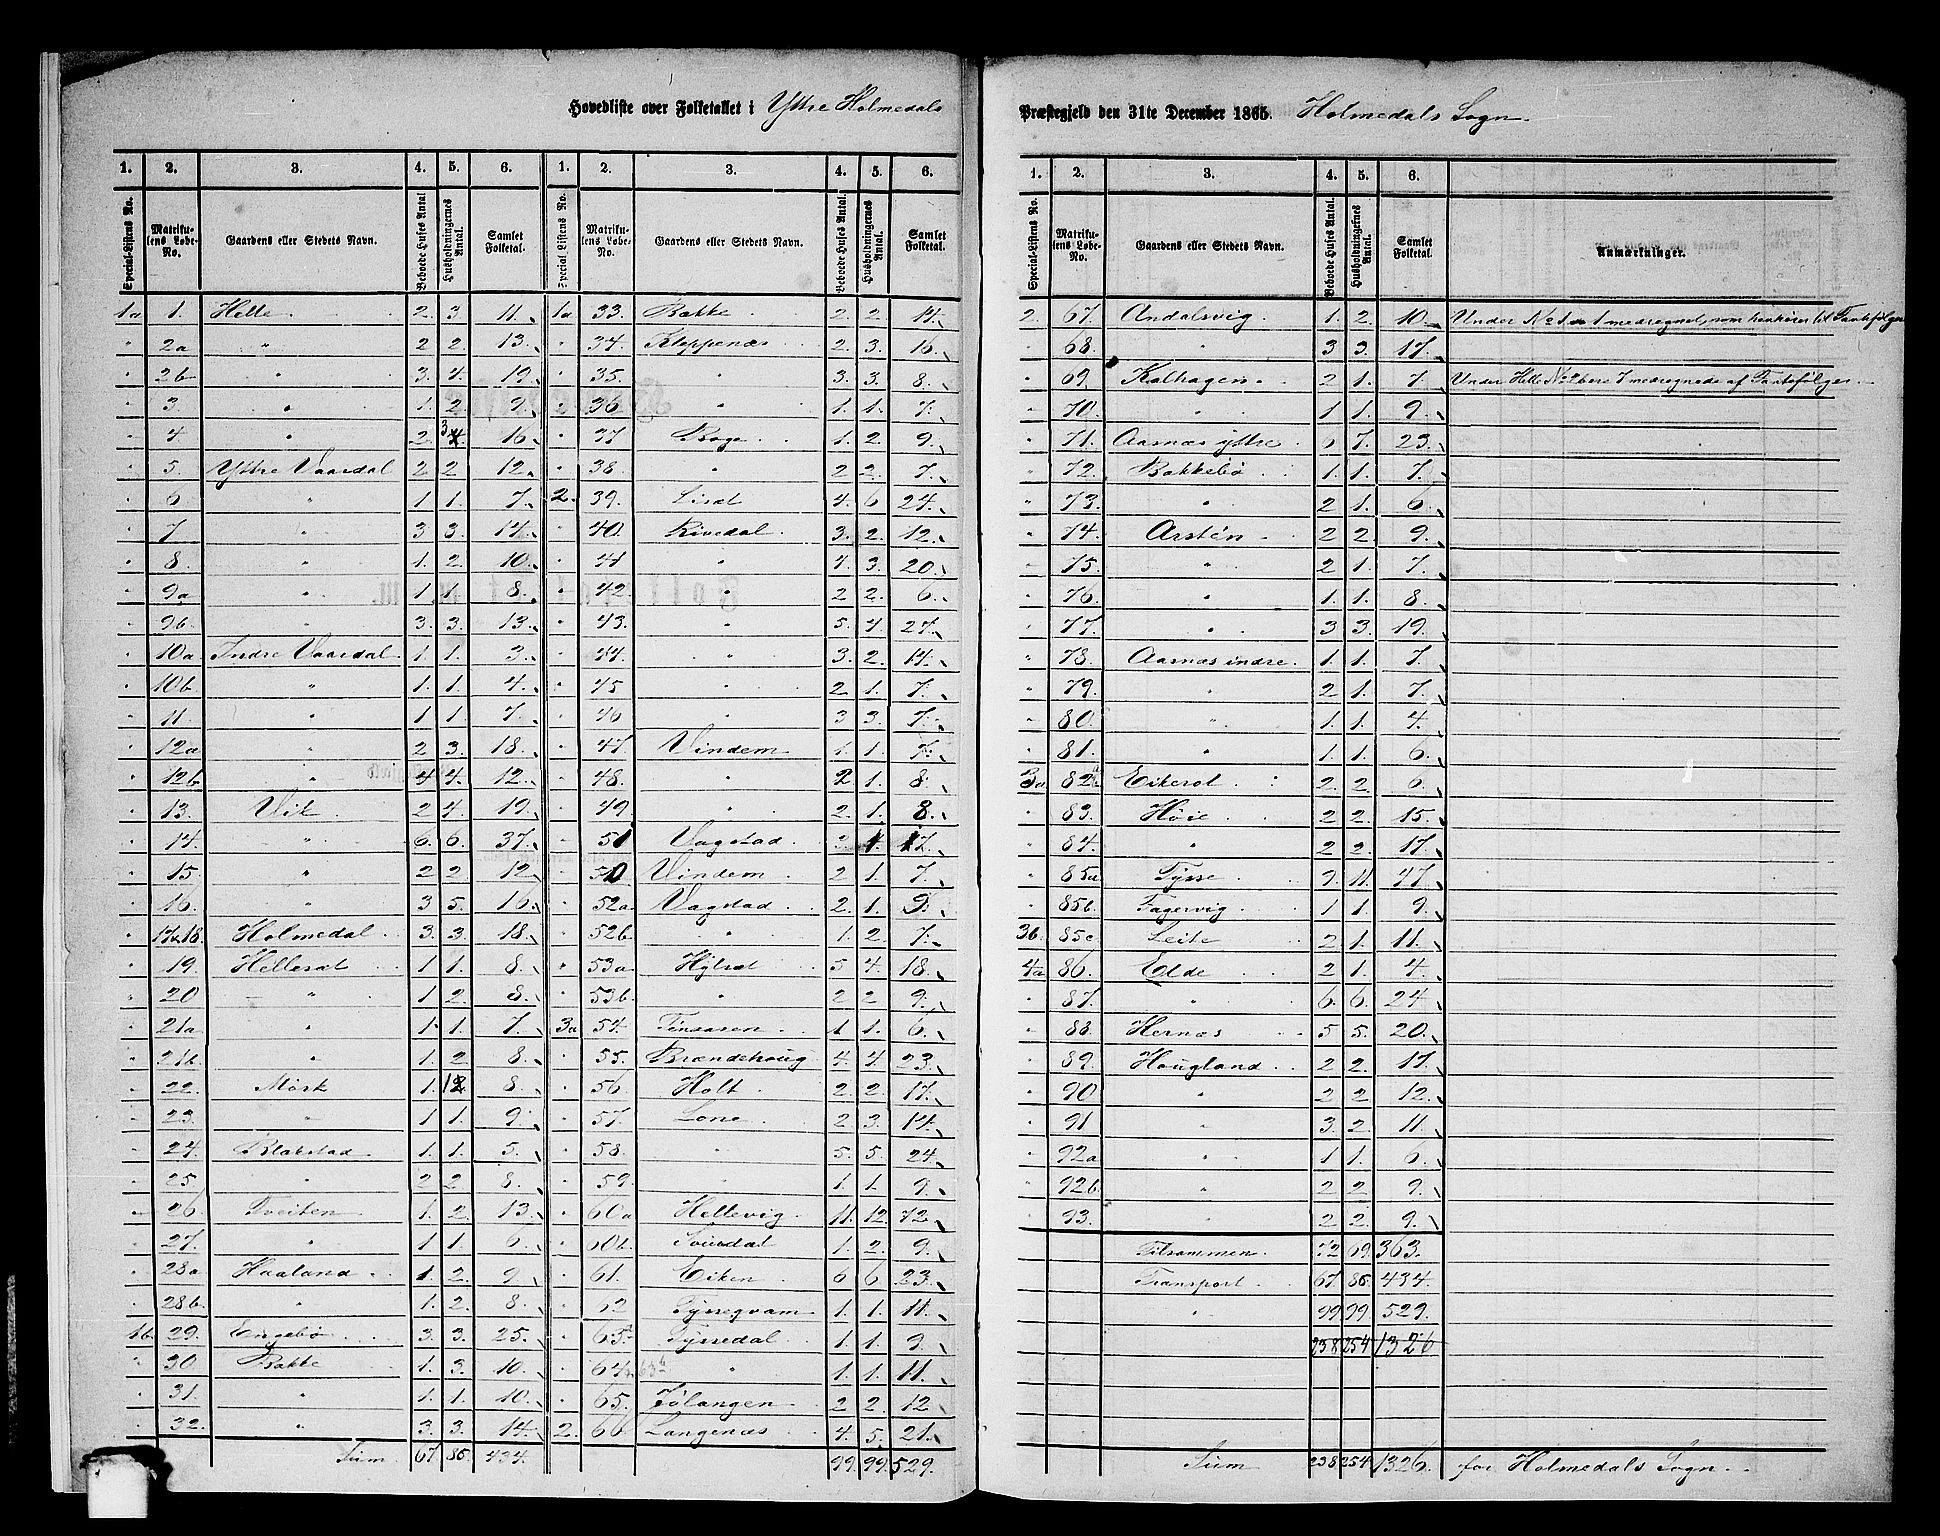 Hovedliste over Folketallet i Yttre Holmedals
Præstegjeld den 31te December 1865. Holmedals Sogn.
1. 2. 3. 4. 5. 6. 1. 2. 3. 4. 5. 6.
Special-Listens No. Matrikulens Løbe-No. Gaardens eller Stedets Navn. Beboede Huses Antal Husholdningernes Antal. Samlet Folketal. Special-Listens No. Matrikulens Løbe-No. Gaardens eller Stedets Navn. Beboede Huses Antal. Husholdningernes Antal. Samlet Folketal.
1a 1. Helle 2. 3 11. 1a 33. Bakke 2. 2. 14.
" 2a " 2 2. 13. " 34. Kleppenæs 2. 3. 16.
" 2b " 3. 4. 19. " 35. " 3. 3. 8.
" 3 " 1. 2 9. " 36 " 1. 1. 7.
" 4 " 2. 3 16. " 37 Boge 1. 2. 9.
" 5. Yttre Vaardal 2 2. 12. " 38. " 2 2. 7.
" 6 " 1 1. 7. 2. 39. Lisæt 4. 6 24.
" 7 " 3 3. 14. " 40. Rivedal 3. 2. 12.
" 8 " 1. 2 10. " 41 " 4. 3. 20.
" 9a " 1. 1 8. " 42. " 2 2. 6.
" 9b " 3. 3. 13. " 43. " 5. 4. 27.
" 10a Indre Vaardal 1. 1. 3. " 44. " 3. 2. 14.
" 10b. " 1. 1. 4. " 45 " 2 1. 7.
" 11. " 1 1. 7. " 46 " 3 3. 7.
" 12a " 2 3. 18. " 47. Vindem 1. 1. 7.
" 12b " 4 4. 12. " 48. " 2 1. 8.
" 13. Vik 2 4. 19. " 49 " 2. 1. 8.
" 14. " 6. 6. 37. " 51 Vagstad 17.
" 15 " 2 2. 12. " 50 Vindem 2 1. 7.
" 16. " 3 5. 16. " 52a Vagstad 2. 1. 9.
" 17&18. Holmedal 3. 3. 18. " 52b " 1. 2. 7.
" 19. Hellesæt 1 1. 8. " 53a Hylsæt 5 4. 18.
" 20 " 1 2. 8. " 53b. " 2 2 9.
" 21a " 1. 1. 7. 3a 54. Tinsaren 1 1. 6.
" 21b. " 1. 2. 8. " 55. Brændehoug 4. 4. 23.
" 22. Mørk 1. 8. " 56. Holt 2. 2. 17.
" 23. " 1 1. 9. " 57. Lone 2 3. 14.
" 24. Blakstad 1. 1. 5. " 58. " 5. 5. 24.
" 25. " 2 2 8. " 59. " 1 1. 9.
" 26. Tveiten 1. 2. 13. " 60a Hellevig 11. 12. 72.
" 27. " 1 1. 6. " 60b. Sourdal 1. 2 9.
" 28a Haaland 1. 2. 9 " 61. Eiken 6 6 23.
" 28b. " 1. 2. 8. " 62 Tyssegvam 1. 1. 11.
1b 29. Engebø 3. 3. 25. " 63. Tyssedal 1. 1. 9.
" 30 Bakke 1. 3. 10. " 64. 63b " 1. 1. 11.
" 31. " 1. 1. 10. " 65. Jølangen 2 2. 12.
" 32. " 3. 3. 14. 2. 66 Langenæs 4. 5. 21.
Sum 67 86. 434. 99. 99. 529.
1. 2. 3. 4. 5. 6.
Special-Listens No. Matrikulens Løbe-No. Gaardens eller Stedets Navn. Beboede Huses Antal. Husholdningernes Antal. Samlet Folketal. Anmærkninger.
2. 67. Andalsvig 1. 2. 10. Under No 1a 1 medregnet, som henhører til Tantefølge
" 68. " 3 3. 17.
" 69. Kalhagen 2 1. 7. Under Helle No 2b ere 7 medregnede af Fantefølger
" 70. " 1 1. 9.
" 71. Aarnæs yttre 6 7. 23.
" 72. Bakkebø 1. 1. 7.
" 73. " 2 1. 6
" 74. Arstén 2 2. 9.
" 75. " 2 1. 7.
" 76. " 1. 1. 8.
" 77. " 3 3. 19.
" 78. Aarnæs indre 1. 1. 7.
" 79. " 2 1. 7.
" 80. " 1. 1. 4.
" 81. " 1 1. 6.
3a 82a Eikerol 2. 2. 6.
" 83. Høie 2 2. 15.
" 84. " 2 2. 17.
" 85a Tysse 9. 11. 47.
" 85b. Fagervig 1 1. 9.
3b. 85c Leite 2 1. 11.
4a 86. Elde 2 1. 4.
" 87. " 6. 6. 24
" 88. Hernæs 5 5. 20.
" 89. Hougland 2 2. 17.
" 90. " 2 2 12.
" 91 " 3. 2. 11.
" 92a " 1 1. 6.
" 92b. " 2 2. 9.
" 93. " 2 2. 9.
Tilsammen. 72 69. 363.
Transport. 67. 86. 434.
" 99 99. 529.
238 254 1326
Sum 238 254. 1326. for Holmedals Sogn.